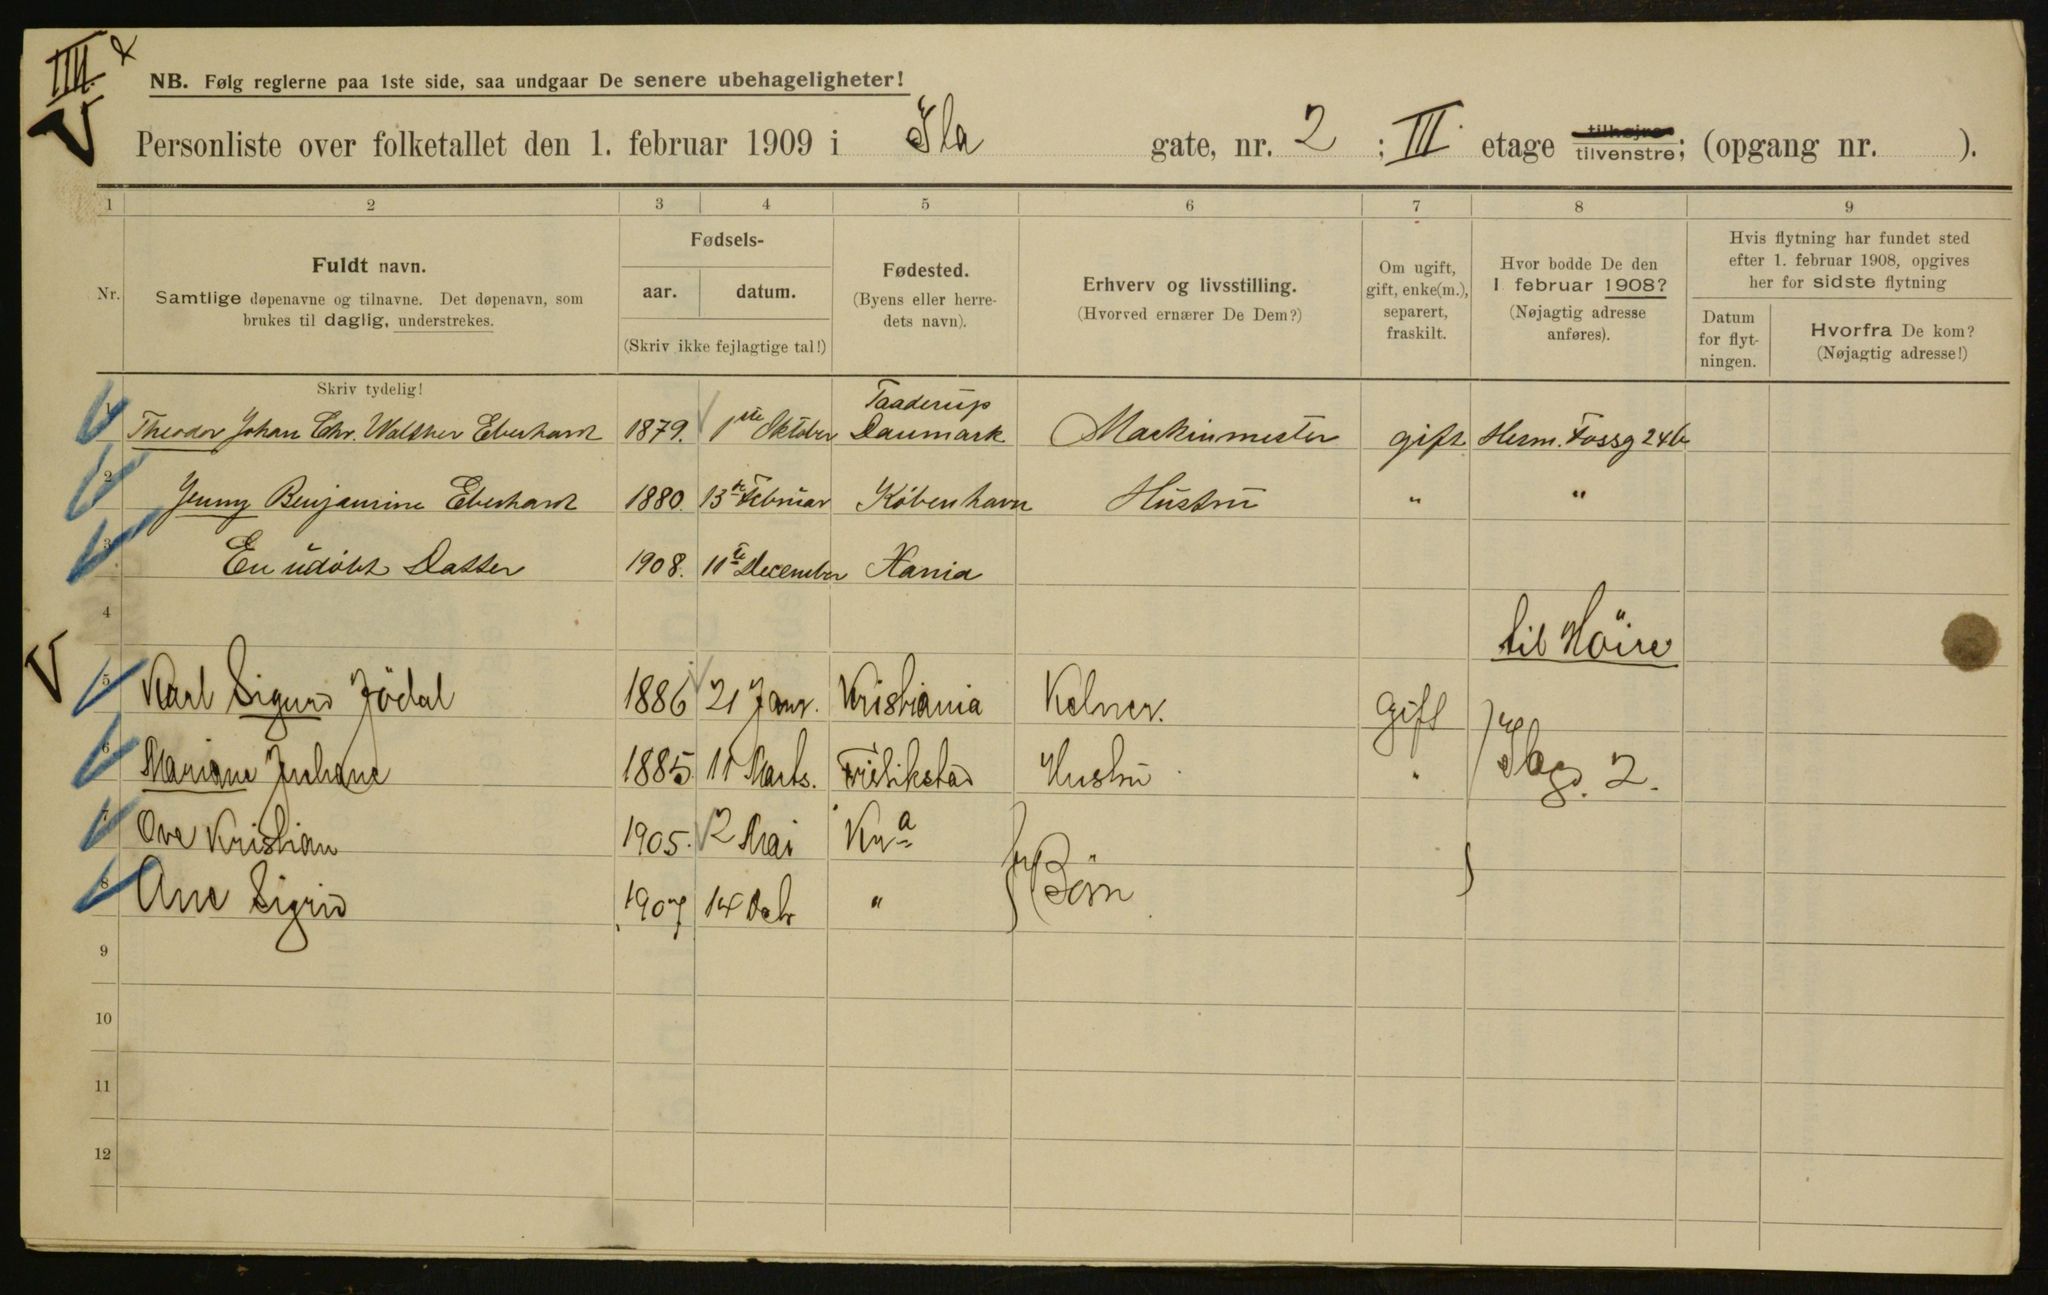 III. x
V
NB. Følg reglerne paa 1ste side, saa undgaar De senere ubehageligheter!
Personliste over folketallet den 1. februar 1909 i Ila gate, nr. 2 ; III. etage tilhøjre tilvenstre; (opgang nr. ).
1 2 3 4 5 6 7 8 9
Nr.
Fuldt navn.
Samtlige døpenavne og tilnavne. Det døpenavn, som
brukes til daglig, understrekes.
Fødsels-
aar. datum.
(Skriv ikke fejlagtige tal!)
Fødested.
(Byens eller herre-
dets navn).
Erhverv og livsstilling.
(Hvorved ernærer De Dem?)
Om ugift,
gift, enke(m.),
separert,
fraskilt.
Hvor bodde De den
1 februar 1908?
(Nøjagtig adresse
anføres).
Hvis flytning har fundet sted
efter 1. februar 1908, opgives
her for sidste flytning
Datum
for flyt-
ningen.
Hvorfra De kom?
(Nøjagtig adresse!)
Skriv tydelig!
1 Theodor Johan Chr. Walther Eberhardt 1879. 1ste Oktober Taaderup Danmark Maskinmester gift Herm. Fossg 24b
2 Jenny Benjamine Eberhardt 1880. 13de Februar København Hustru " "
3 En udøbt Datter 1908. 11te December Xania
4 til Höire
V
5 Karl Sigurd Jödal 1886 21 Janr. Kristiania Kelner. gift
6 Mariane Juliane 1885 11 Marts. Fredrikstad Hustru " Ilagd. 2.
7 Ove Kristian 1905. 2 Mai Kra
8 Ane Sigrid 1907 14 Debr " Börn
9
10
11
12